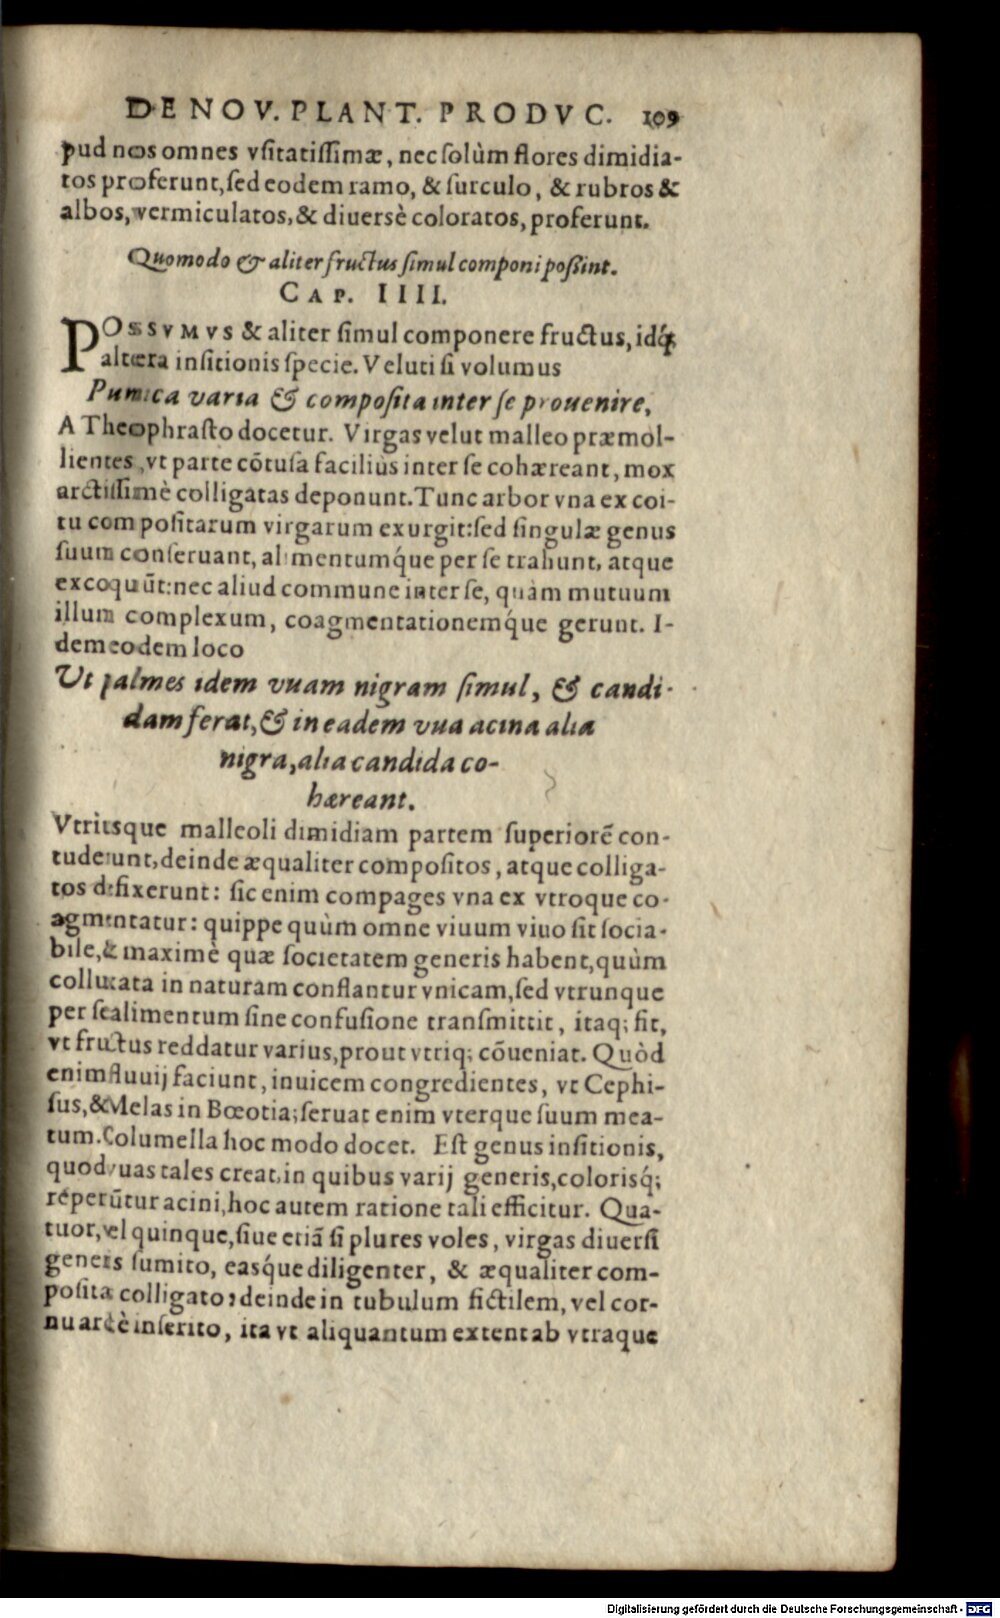 DE NOV. PLANT. PRODVC. 109
pud nos omnes vsitatissimæ, nec solùm flores dimidia-
tos proferunt, sed eodem ramo, & surculo, & rubros &
albos, vermiculatos, & diuersè coloratos, proferunt.
Quomodo & aliter fructus simul componi possint.
CAP. IIII.
POSSVMVS & aliter simul componere fructus, idq́;
altera insitionis specie. Veluti si volumus
Punica varia & composita inter se prouenire,
A Theophrasto docetur. Virgas velut malleo præmol-
lientes, vt parte cõtusa faciliùs inter se cohæreant, mox
arctissimè colligatas deponunt. Tunc arbor vna ex coi-
tu compositarum virgarum exurgit: sed singulæ genus
suum conseruant, alimentumq́ue per se trahunt, atque
excoquũt: nec aliud commune inter se, quàm mutuum
illum complexum, coagmentationemq́ue gerunt. I-
dem eodem loco
Ut palmes idem vuam nigram simul, & candi-
dam ferat, & in eadem vua acina alia
nigra, alia candida co-
hæreant.
Vtriusque malleoli dimidiam partem superiorẽ con-
tuderunt, deinde æqualiter compositos, atque colliga-
tos defixerunt: sic enim compages vna ex vtroque co-
agmentatur: quippe quùm omne viuum viuo sit socia-
bile, & maximè quæ societatem generis habent, quùm
collocata in naturam conflantur vnicam, sed vtrunque
per se alimentum sine confusione transmittit, itaq; fit,
vt fructus reddatur varius, prout vtriq; cõueniat. Quòd
enim fluuij faciunt, inuicem congredientes, vt Cephi-
sus, & Melas in Bœotia; seruat enim vterque suum mea-
tum. Columella hoc modo docet. Est genus insitionis,
quod vuas tales creat, in quibus varij generis, colorisq́;
reperũtur acini, hoc autem ratione tali efficitur. Qua-
tuor, vel quinque, siue etiã si plures voles, virgas diuersi
generis sumito, easq́ue diligenter, & æqualiter com-
posita colligato; deinde in tubulum fictilem, vel cor-
nu arctè inserito, ita vt aliquantum extent ab vtraque
Digitalisierung gefördert durch die Deutsche Forschungsgemeinschaft - DFG